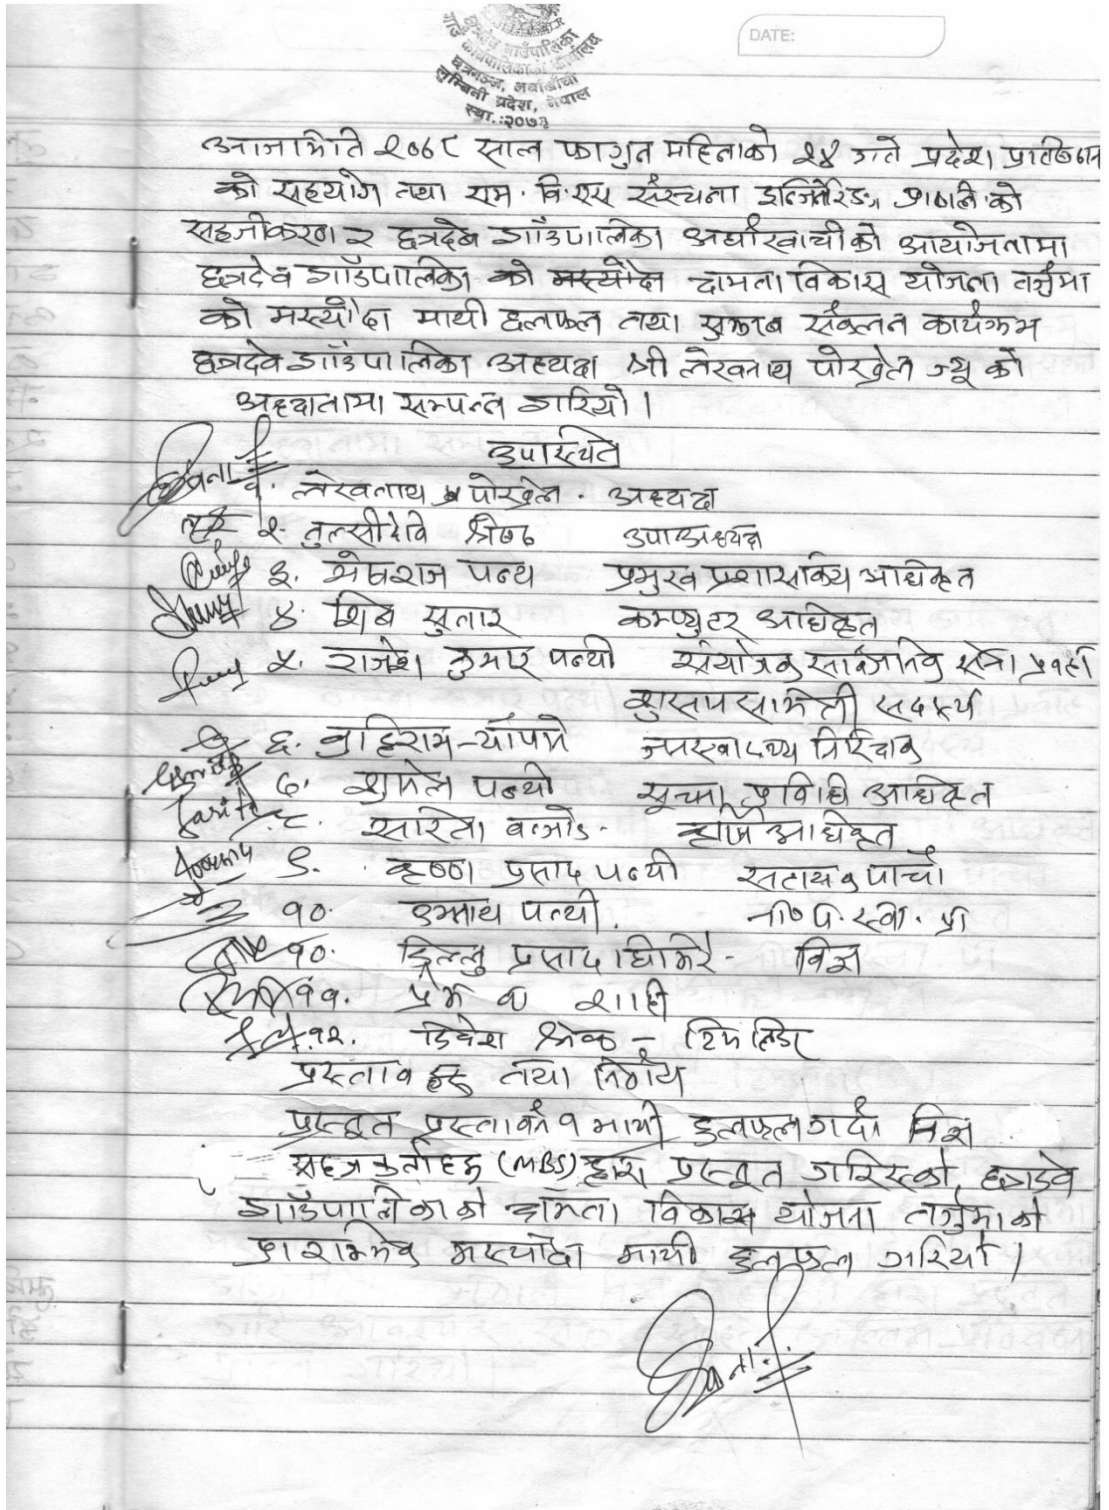 छत्रदेव गाउँपालिका
गाउँ कार्यपालिकाको कार्यालय
छत्रगञ्ज, अर्घाखाँची
लुम्बिनी प्रदेश, नेपाल
स्था.:२०७३
DATE:
आजमिति २०७८ साल फागुन महिनाको २४ गते प्रदेश प्रतिष्ठान
को सहयोग तथा एम. बि. एस संरचना इन्जिनेरिङ्ग प्रा०ली०को
सहजीकरण र छत्रदेव गाँउपालिका अर्घाखाचीको आयोजनामा
छत्रदेव गाँउपालिका को मस्यौदा क्षमता विकास योजना तर्जुमा
को मस्यौदा माथी छलफल तथा सुझाब संकलन कार्यक्रम
छत्रदेव गाँउपालिका अध्यक्ष श्री लेखनाथ पोख्रेल ज्यू को
अध्यक्षतामा सम्पन्न गरियो।
उपस्थिति
१. लेखनाथ पोख्रेल - अध्यक्ष
२. तुल्सीदेवि श्रेष्ठ उपाअध्यक्ष
३. मेघराज पन्थ प्रमुख प्रशासकिय अधिकृत
४. शिब सुनार कम्प्युटर अधिकृत
५. राजेश कुमार पन्थी संयोजक सार्वजनिक सेवा प्रवाह
सुसाशसमिती सदस्य
६. बुद्दिराम न्यौपाने जनस्वास्थ्य निरिक्षक
७. सुमित पन्थी सूचना प्रविधि अधिकृत
Sarita ८. सरिता बन्जाडे - कृषि अधिकृत
९. कृष्ण प्रसाद पन्थी सहायक पाचौ
१०. पन्थी.
१०. डिल्लु प्रसाद घिमिरे - विज्ञ
११. प्रेम ब शाही
१२. दिपेश श्रेष्ठ - टिम लिडर
प्रस्ताब हरु तथा निर्णय
प्रस्तुत प्रस्ताव नं १ माथी छलफल गर्दा विज्ञ
सहजकर्ताहरु (MBS) द्वारा प्रस्तुत गरिएको छत्रदेव
गाँउपालिकाको क्षमता विकास योजना तर्जुमाको
प्रारम्भिक मस्यौदा माथी छलफल गरियो।